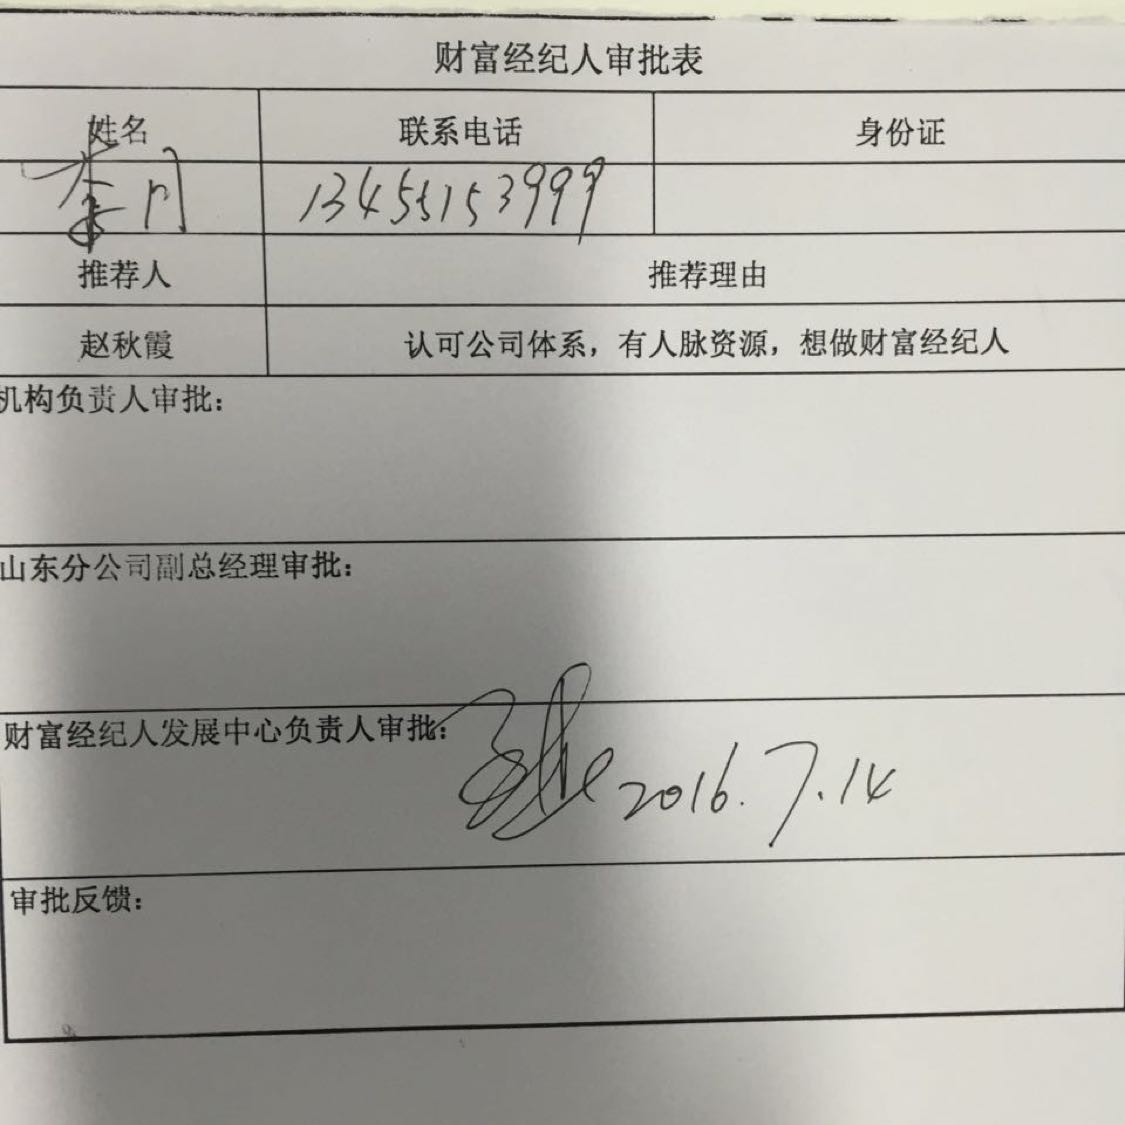 财富经纪人审批表
姓名 联系电话 身份证
13455153999
推荐人 推荐理由
赵秋霞 认可公司体系，有人脉资源，想做财富经纪人
机构负责人审批：
山东分公司副总经理审批：
财富经纪人发展中心负责人审批：
2016.7.14
审批反馈：